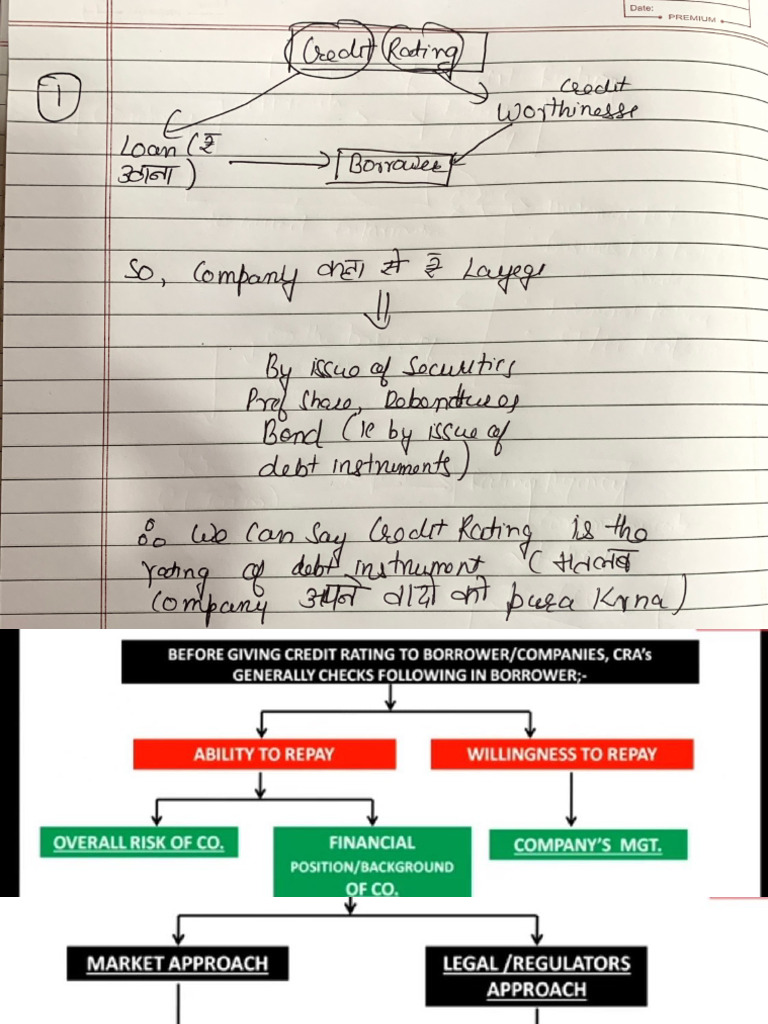 Date:
PREMIUM
Credit Rating
1
Credit
Worthinesse
Loan (₹
उगाना)
Borrower
So, Company कहा से ₹ Layege
By issue of Securities
Pref Share, Debentures
Bond (ie by issue of
debt instruments)
∴ We Can Say Credit Rating is the
rating of debt instrument (मतलब
Company अपने वादो को pura Krna)
BEFORE GIVING CREDIT RATING TO BORROWER/COMPANIES, CRA's
GENERALLY CHECKS FOLLOWING IN BORROWER;-
ABILITY TO REPAY
WILLINGNESS TO REPAY
OVERALL RISK OF CO.
FINANCIAL
POSITION/BACKGROUND
OF CO.
COMPANY'S MGT.
MARKET APPROACH
LEGAL /REGULATORS
APPROACH